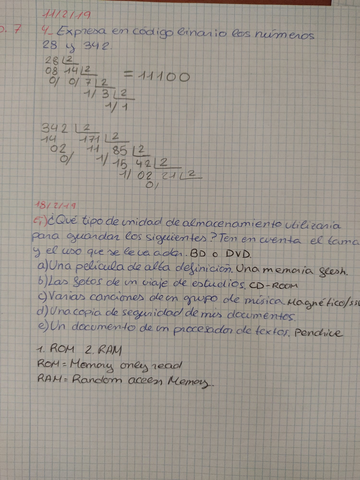 11/2/19
p. 7 4_ Expresa en código binario los números
28 y 342
28 |2
08 14 |2 = 11100
0/ 0/ 7 |2
1/ 3 |2
1/ 1
342 |2
14 171 |2
02 11 85 |2
0/ 1/ 15 42 |2
1/ 02 21 |2
0/
18/2/19
¿Qué tipo de unidad de almacenamiento utilizaria
para guardar los siguientes? Ten en cuenta el tama
y el uso que se le va a dar. BD o DVD.
a) Una pelicula de alta definición. Una memoria flesh.
b) Las fotos de un viaje de estudios. CD-ROOM
c) Varias canciones de un grupo de música. Magnético/
d) Una copia de seguridad de mis documentos.
e) Un documento de un procesador de textos. Pendrive
1. ROM 2. RAM
ROM = Memory only read
RAM = Random accen Memory